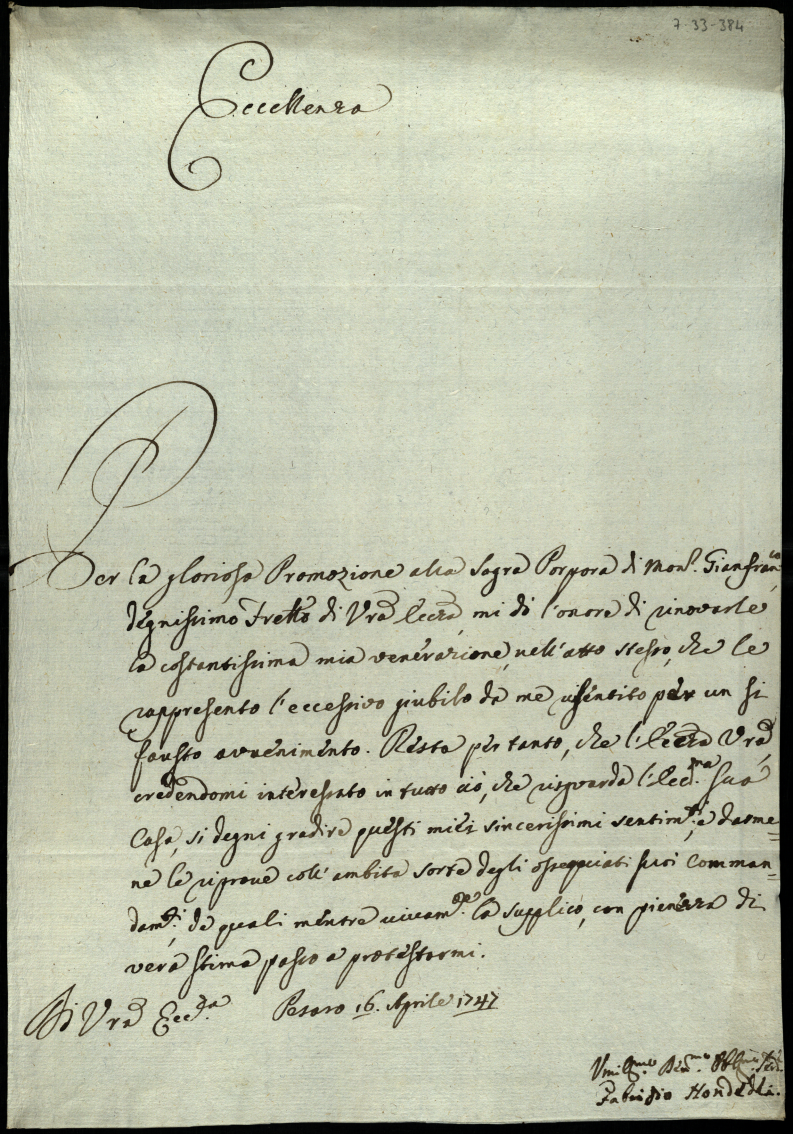 7-33-384
Eccellenza
Per la gloriosa Promozione alla Sagra Porpora di Monsr. Gianfranco
degnissimo Frello di Vra Eccza, mi dò l'onore di rinovarle
la costantissima mia venerazione, nell'atto stesso, che le
rappresento l'eccessivo giubilo da me risentito per un sì
fausto avvenimento. Resta per tanto, che l'Eccza Vra,
credendomi interessato in tutto ciò, che risguarda l'Eccma sua
Casa, si degni gradire questi miei sincerissimi sentimti, e darme=
ne le riprove coll'ambita sorte degli ossequiati suoi comman=
damti, de quali mentre vivamte la supplico, con pienezza di
vera stima passo a protestarmi.
Di Vra Eccza Pesaro 16. Aprile 1747
Umilmo Devmo Obblmo
Fabrizio Hondedei.